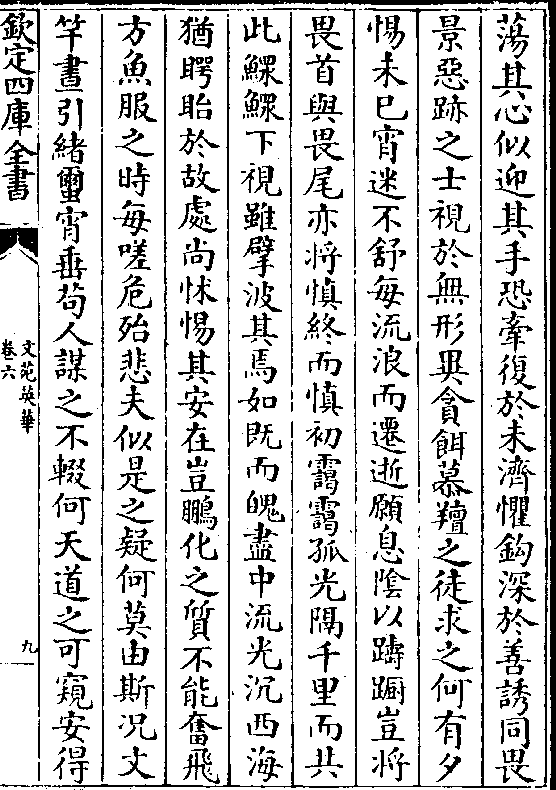 蕩其心似迎其手恐牽復於未濟懼鈎深於善誘同畏
景惡跡之士視於無形異貪餌慕羶之徒求之何有夕
惕未已宵迷不舒每流浪而遷逝願息陰以躊躕豈將
畏首與畏尾亦將慎終而慎初靄靄孤光隔千里而共
此鰥鰥下視雖擘波其焉如既而魄盡中流光沉西海
猶睜眙於故處尚怵惕其安在豈鵬化之質不能奮飛
方魚服之時每嗟危殆悲夫似是之疑何莫由斯况文
竿晝引緒璽宵垂苟人謀之不輟何天道之可窺安得
欽定四庫全書
文苑英華
卷六
九